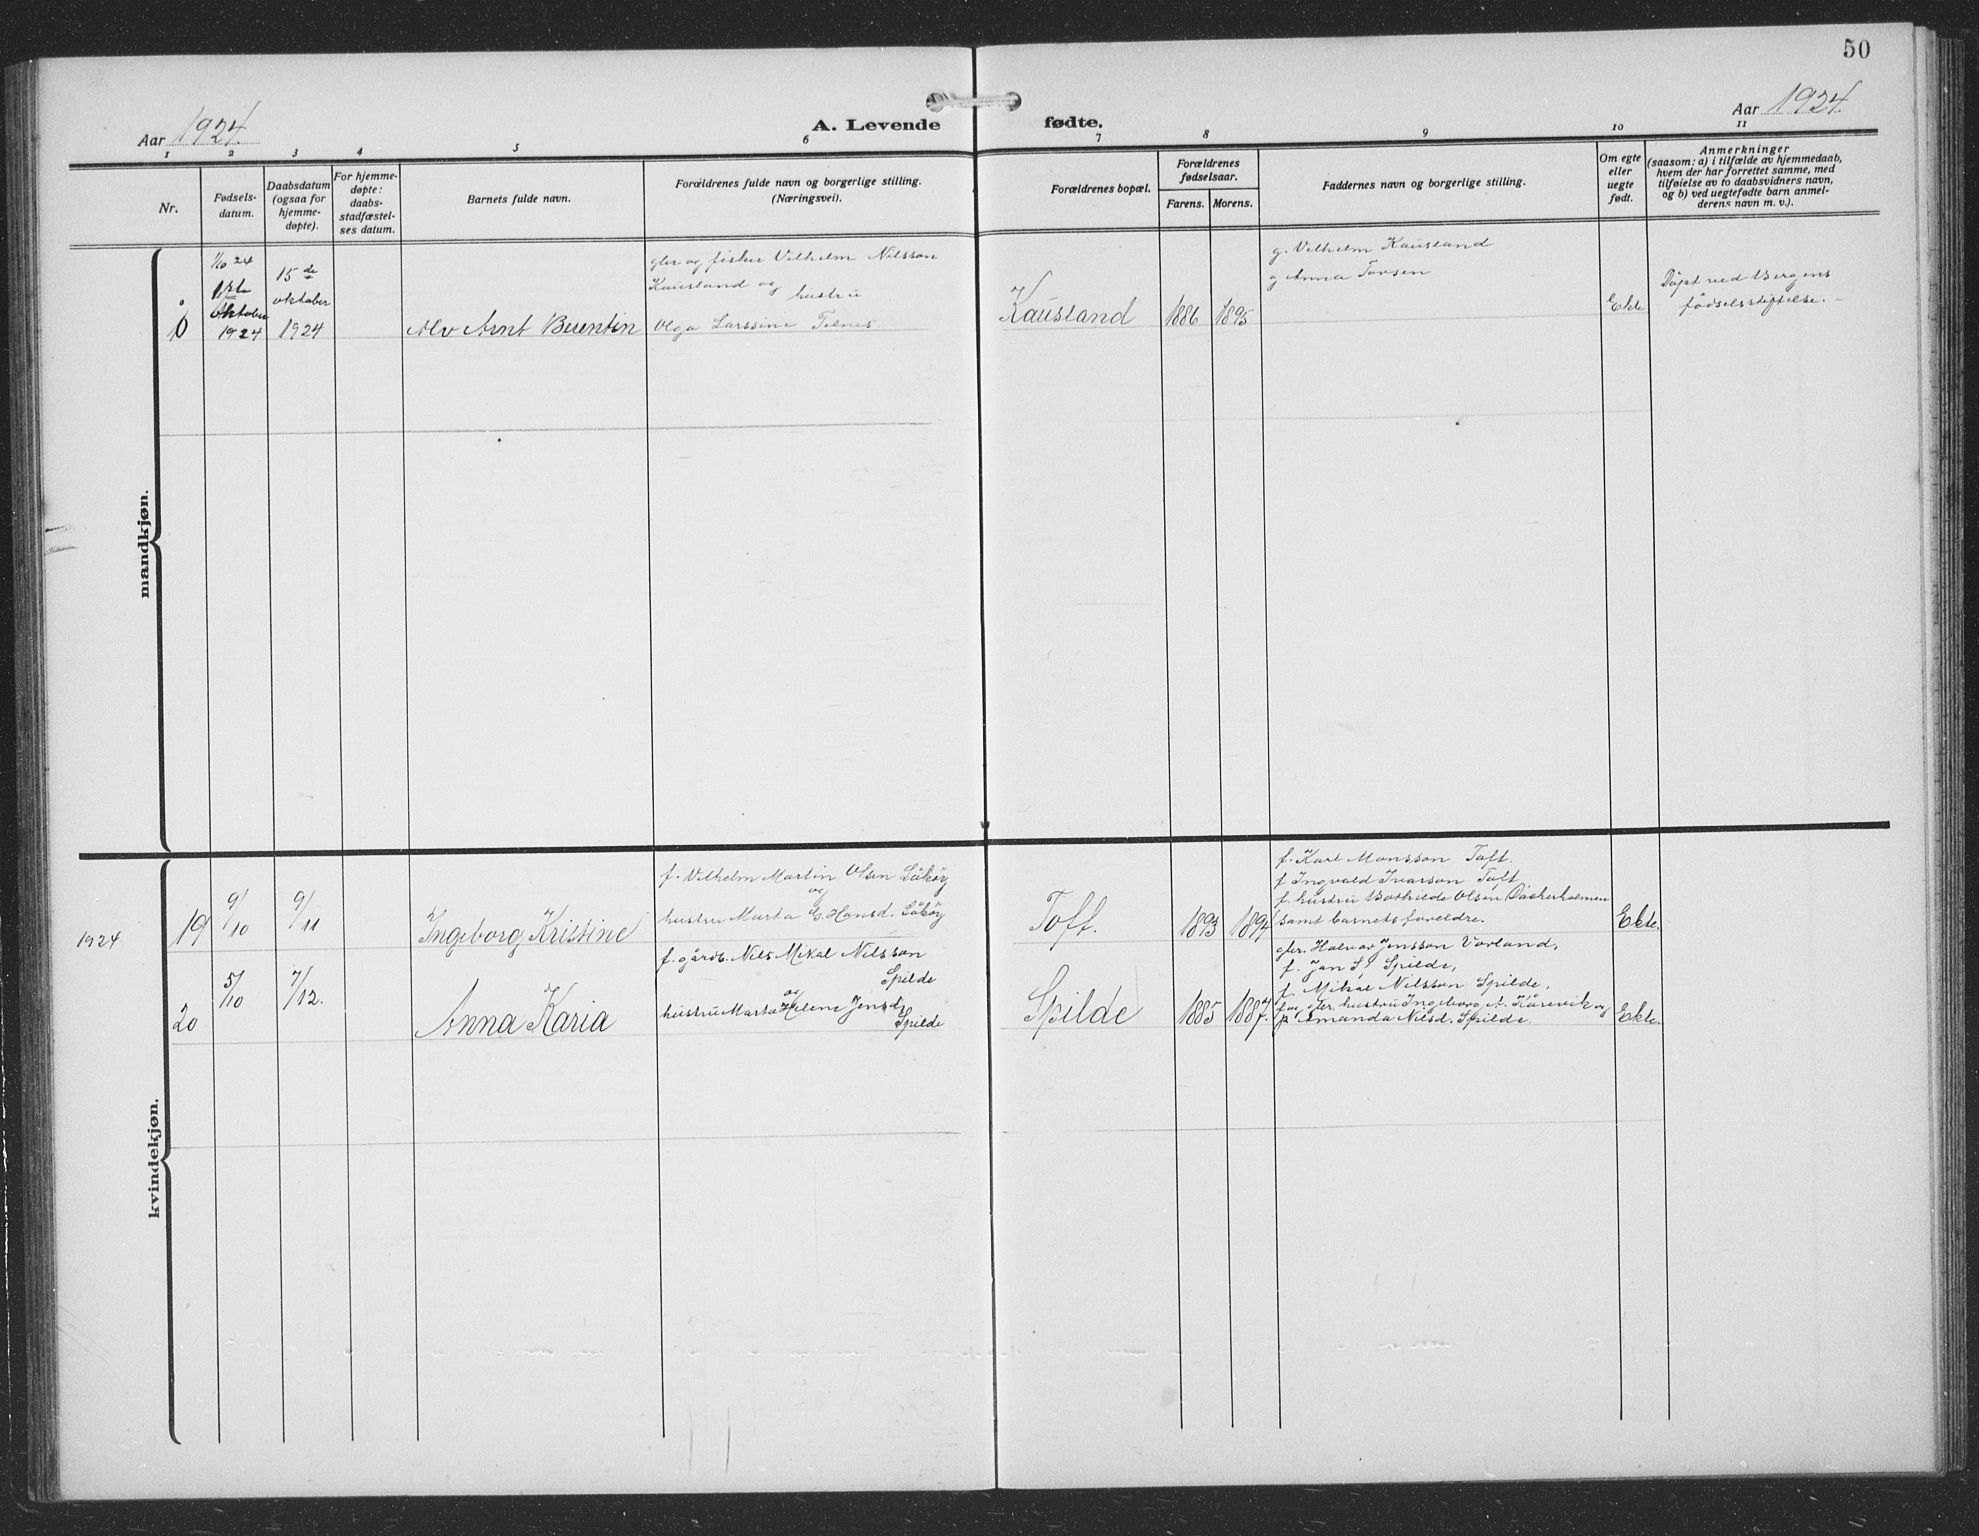 50
Aar 1924.
A. Levende fødte.
Aar 1924.
1 2 3 4 5 6 7 8 9 10 11
Nr.
Fødsels-
datum.
Daabsdatum
(ogsaa for
hjemme-
døpte).
For hjemme-
døpte:
daabs-
stadfæstel-
ses datum.
Barnets fulde navn.
Forældrenes fulde navn og borgerlige stilling.
(Næringsvei).
Forældrenes bopæl.
Forældrenes
fødselsaar.
Farens. Morens.
Faddernes navn og borgerlige stilling.
Om egte
eller
uegte
født.
Anmerkninger
(saasom: a) i tilfælde av hjemmedaab,
hvem der har forrettet samme, med
tilføielse av to daabsvidners navn,
og b) ved uegtefødte barn anmel-
derens navn m. v.).
mandkjøn.
1/10 24
oktober
1924
15de
oktober
1924
Alv Arnt Berentin
gbr. og fisker Vilhelm Nilsson
Kausland og
hustru
Olga Larssine Telnes.
Kausland
1886
1895
g. Vilhelm Kausland
g Anna Torsen
Ekte
Døpt ved Bergens
fødselsstiftelse.
kvindekjøn.
1924
19
9/10
9/11
Ingeborg Kristine
f. Vilhelm Martin Olsen Låkøy
og
hustru Marta G. Hansd. Låkøy
Toft.
1893
1894
f. Karl Monsson Toft.
f Ingvald Ivarson Toft
f. hustru Bothilde Olsen
samt barnets foreldre.
Ekte.
20
5/10
7/12.
Anna Karia
f. gårdb. Nils Mikal Nilsson
Spilde
og
hustru Marta Helene Jensd.
Spilde
Spilde
1885
1887.
gbr. Halvar Jensson Vorland,
f. Jan S. Spilde,
f. Mikal Nilsson Spilde,
f og gbr. hustru Ingeborg A. Kårevik og
p Amanda Nilsd. Spilde.
Ekte.